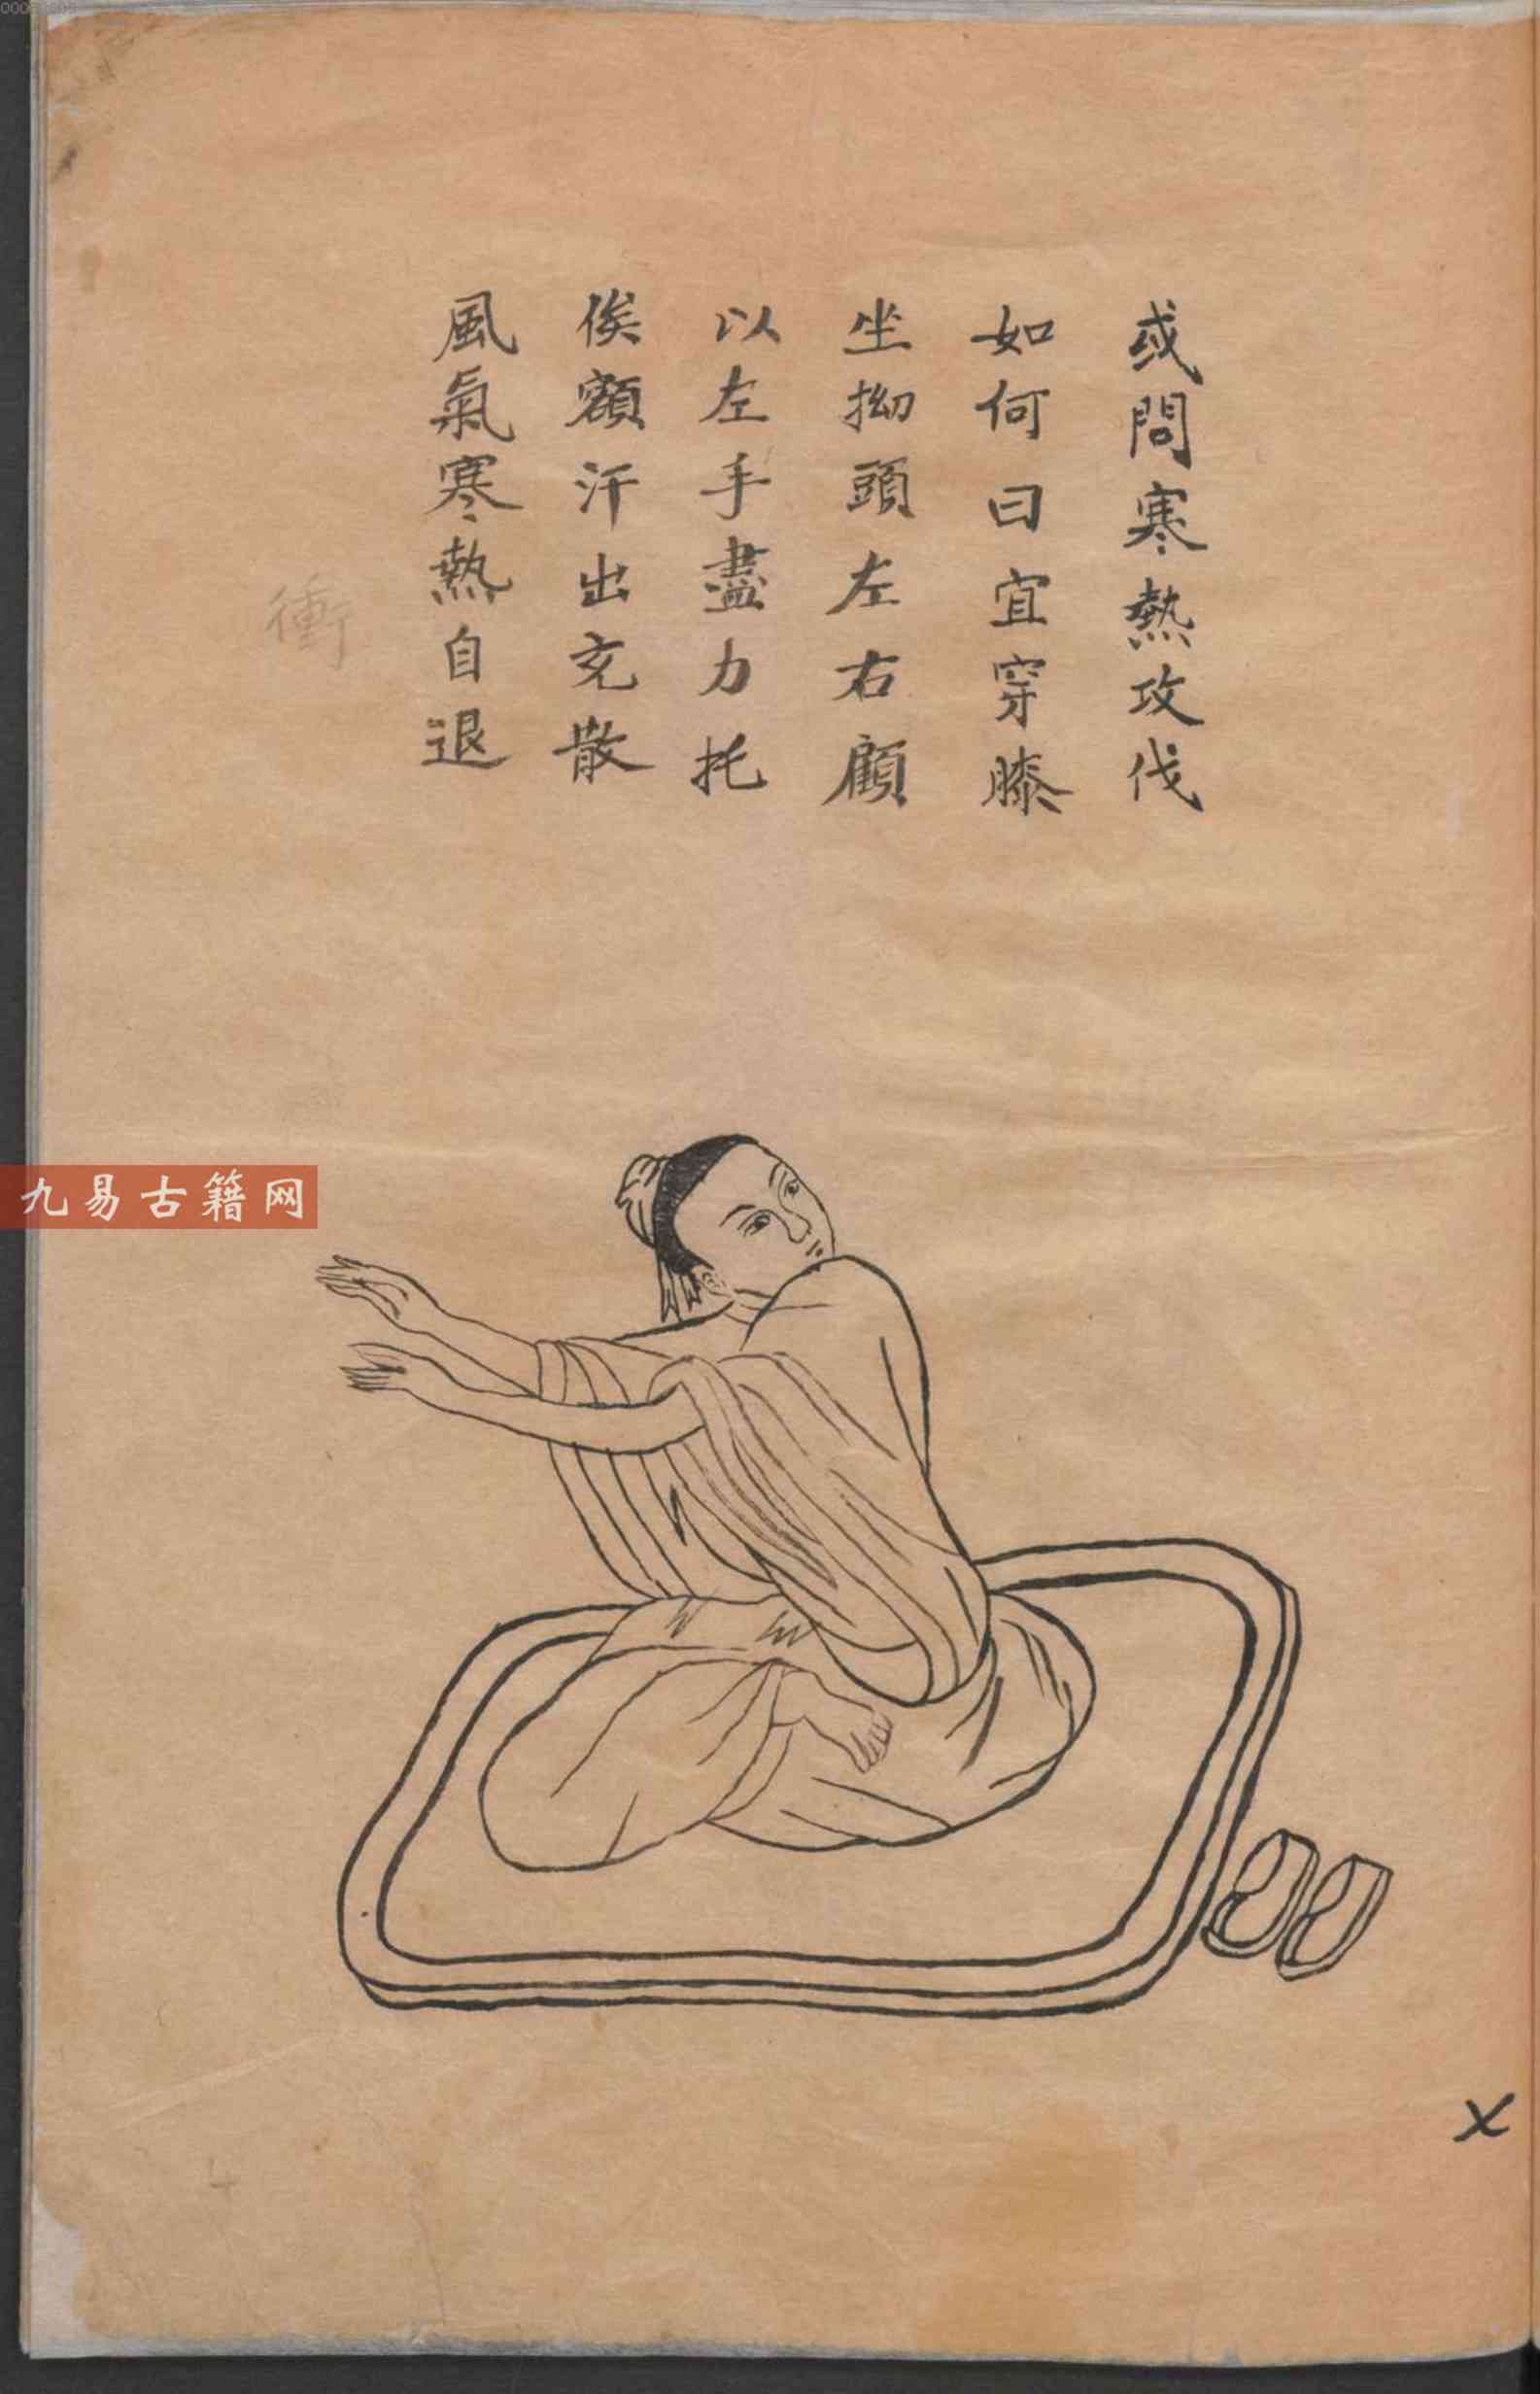 或問寒熱攻伐
如何曰宜穿膝
坐拗頭左右顧
以左手盡力托
俟額汗出充散
風氣寒熱自退
衝
九易古籍网
X